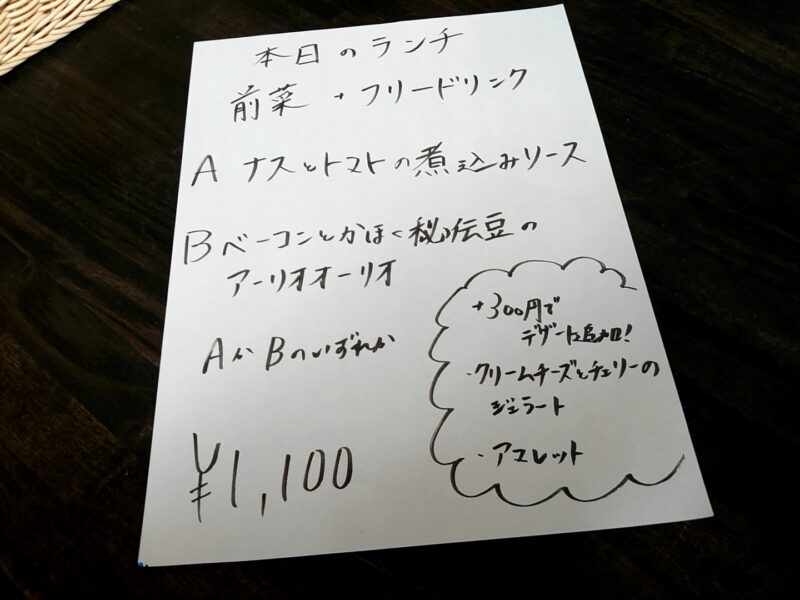 本日のランチ
前菜 + フリードリンク
A ナスとトマトの煮込みソース
B ベーコンとかほく秘伝豆の
アーリオオーリオ
AかBのいずれか
¥1,100
+300円で
デザート追加!
・クリームチーズとチェリーの
ジェラート
・アユレット